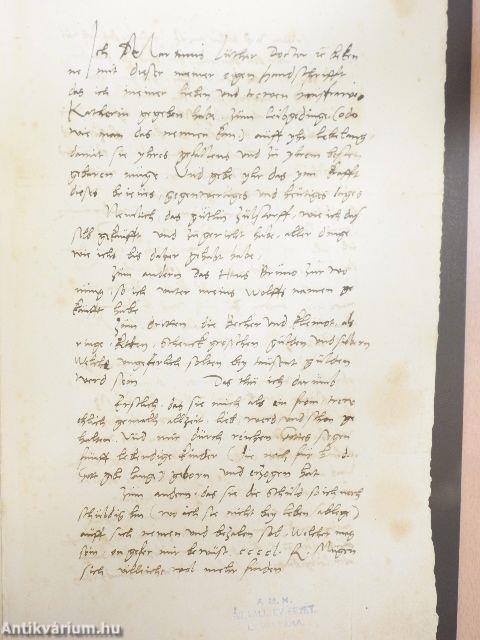 Ich D Martinus Luther Doctor ic beken
ne mit dieser meiner eigen handschrifft
das ich meiner lieben und trewen hausfrawen
Katherin gegeben habe zum leibgedinge (odder
wie man das nennen kan) auff yhr lebelang
damit sie yhres gefallens und zu yhrem besten
gebaren muge Und gebe yhr das ynn krafft
dieses brieues, gegenwertiges und heutiges tages
Nemlich das gutlin Zulstorff, wie ich dassel
selb gekaufft und zugericht habe, aller dinge
wie ichs bis daher gehabt habe
Zum andern das Haus Bruno zur wo
nung, so ich unter meins Wolffs namen ge
kaufft habe
Zum dritten die Becher und kleinot, als
ringe, keten, schenck groschen gulden und silbern
Welche ungeferlich solten bey tausent gulden
werd sein Das thu ich darumb
Erstlich, das sie mich als ein from trew
ehlich gemalh allzeit lieb werd und schon ge
halten, und mir durch reichen Gottes segen
funff lebendige kinder (die noch fur handen
Gott gebe lange) geborn und erzogen hat
Zum andern, das sie die schuld so ich noch
schuldig bin (wo ich sie nicht bey leben ablege)
auff sich nemen und bezalen sol, Welcher mag
sein, on gefer mir bewust, ccccl. fl. Mugen
sich villeicht wol mehr finden
A M. N.
Antikvárium.hu